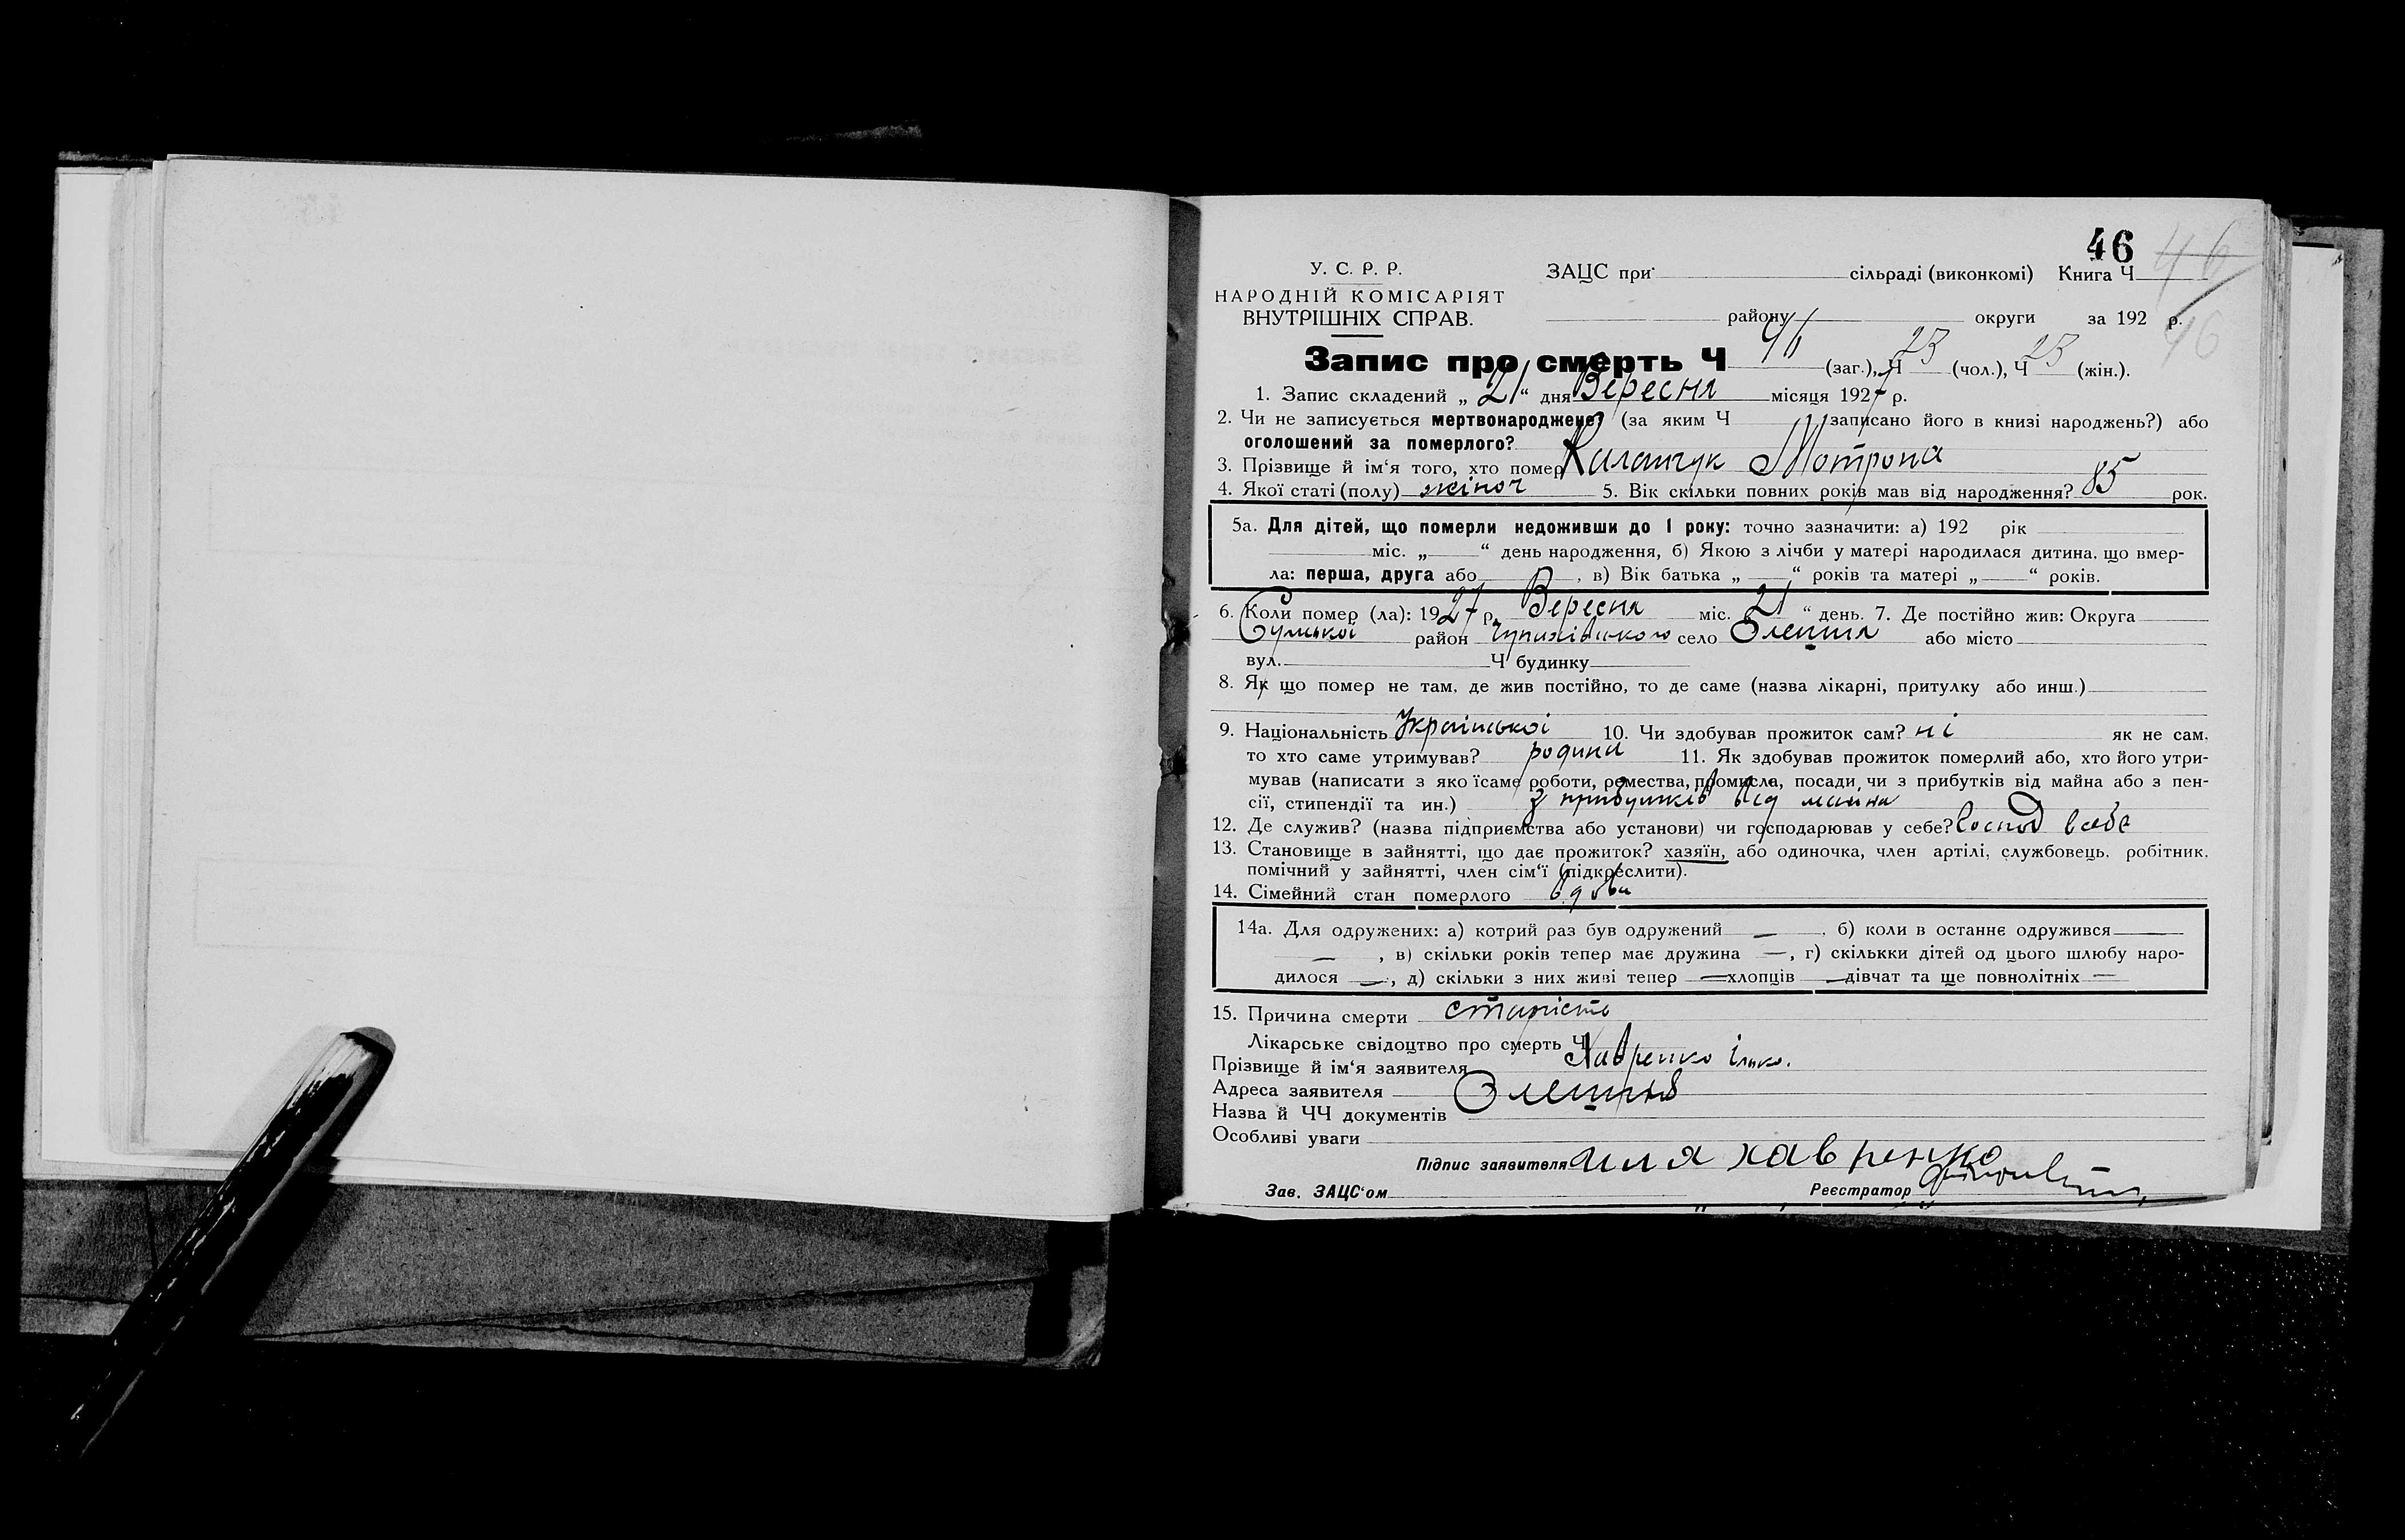 46 46
У. С. Р. Р. ЗАЦС при сільраді (виконкомі) Книга Ч
НАРОДНІЙ КОМІСАРІЯТ
ВНУТРІШНІХ СПРАВ. району округи за 192 р.
46
Запис про смерть Ч 46 (заг.), Ч 23 (чол.), Ч 23 (жін.).
1. Запис складений „ 21 “ дня Вересня місяця 1927 р.
2. Чи не записується мертвонароджене? (за яким Ч записано його в книзі народжень?) або
оголошений за померлого?
3. Прізвище й ім‘я того, хто помер Мотрона
4. Якої статі (полу) жіноч 5. Вік скільки повних років мав від народження? 85 рок.
5а. Для дітей, що померли недоживши до 1 року: точно зазначити: а) 192 рік
міс. „ “ день народження, б) Якою з лічби у матері народилася дитина, що вмер-
ла: перша, друга або , в) Вік батька „ “ років та матері „ “ років.
6. Коли помер (ла): 1927 р. Вересня міс. 21 “ день. 7. Де постійно жив: Округа
Сумської район село Олешня або місто
вул. Ч будинку
8. Як що помер не там, де жив постійно, то де саме (назва лікарні, притулку або инш.)
9. Національність Української 10. Чи здобував прожиток сам? ні як не сам,
то хто саме утримував? родина 11. Як здобував прожиток померлий або, хто його утри-
мував (написати з яко їсаме роботи, ремества, промисла, посади, чи з прибутків від майна або з пен-
сії, стипендії та ин.) З прибутків від майна
12. Де служив? (назва підприємства або установи) чи господарював у себе? Господ в себе
13. Становище в зайнятті, що дає прожиток? хазяїн, або одиночка, член артілі, службовець, робітник,
помічний у зайнятті, член сім‘ї (підкреслити).
14. Сімейний стан померлого вдова
14а. Для одружених: а) котрий раз був одружений — , б) коли в останнє одружився
— , в) скільки років тепер має дружина — , г) скількки дітей од цього шлюбу наро-
дилося — , д) скільки з них живі тепер — хлопців — дівчат та ще повнолітніх —
15. Причина смерти старість
Лікарське свідоцтво про смерть Ч
Прізвище й ім‘я заявителя Хавренко Ілько.
Адреса заявителя Олешня
Назва й ЧЧ документів
Особливі уваги
Підпис заявителя Иля хавренко
Зав. ЗАЦС‘ом Реєстратор